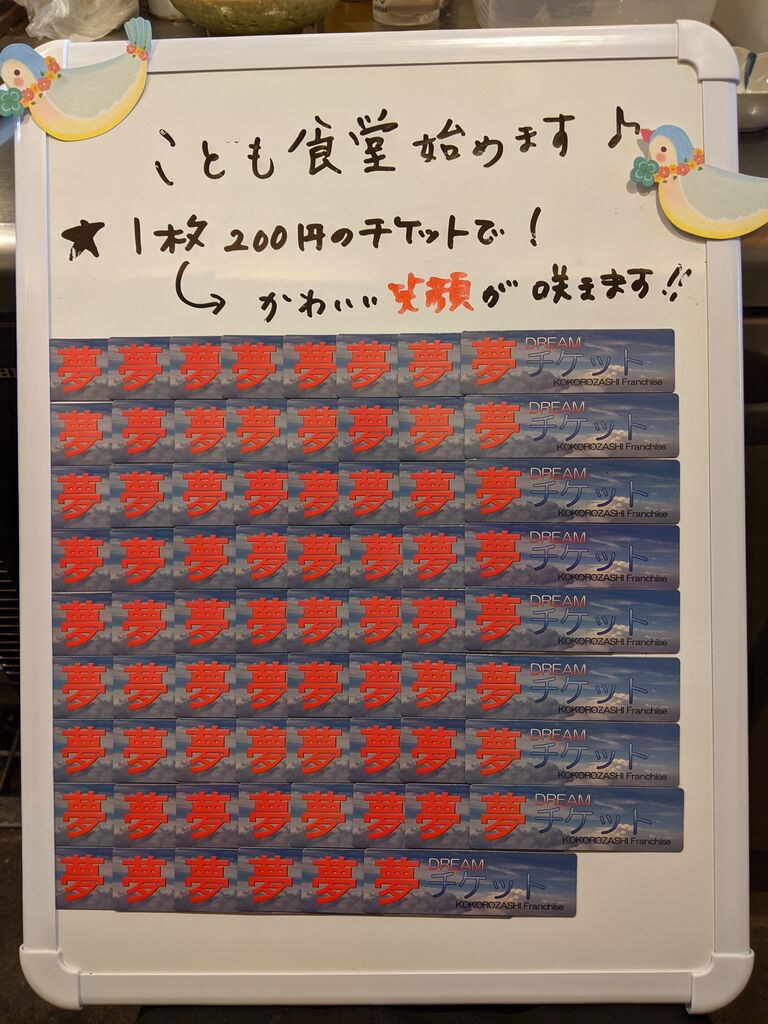 ことも食堂始めます♪
★1枚200円のチケットで!
↪かわいい笑顔が咲きます!!
夢 夢 夢 夢 夢 夢 夢 夢 DREAM チケット
KOKOROZASHI Franchise
夢 夢 夢 夢 夢 夢 夢 夢 DREAM チケット
KOKOROZASHI Franchise
夢 夢 夢 夢 夢 夢 夢 夢 DREAM チケット
KOKOROZASHI Franchise
夢 夢 夢 夢 夢 夢 夢 夢 DREAM チケット
KOKOROZASHI Franchise
夢 夢 夢 夢 夢 夢 夢 夢 DREAM チケット
KOKOROZASHI Franchise
夢 夢 夢 夢 夢 夢 夢 夢 DREAM チケット
KOKOROZASHI Franchise
夢 夢 夢 夢 夢 夢 夢 夢 DREAM チケット
KOKOROZASHI Franchise
夢 夢 夢 夢 夢 夢 夢 夢 DREAM チケット
KOKOROZASHI Franchise
夢 夢 夢 夢 夢 夢 DREAM チケット
KOKOROZASHI Franchise